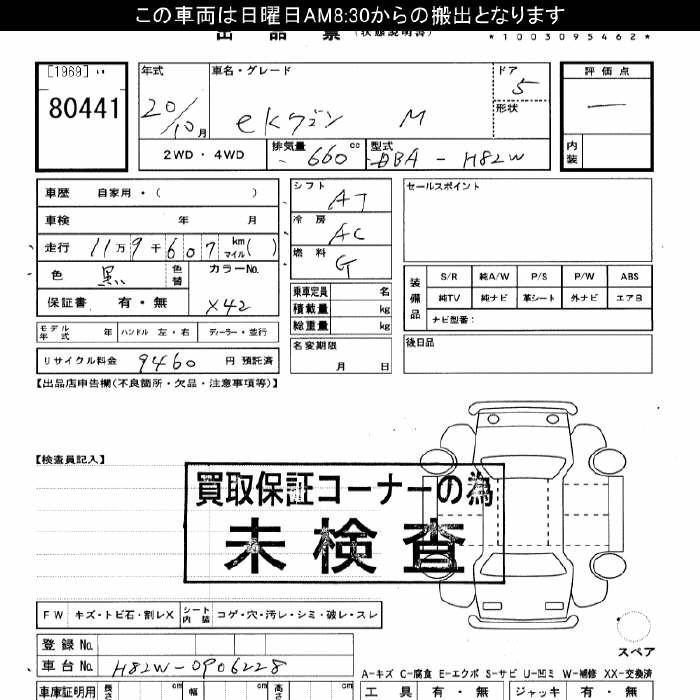 この車両は日曜日AM8:30からの搬出となります
出品票 (状態説明書)
*1003095462*
[1969]
80441
年式
20/10月
車名・グレード
ekワゴン M
ドア
5
形状
評価点
—
内装
2WD・4WD
排気量
660 cc
型式
DBA - H82W
車歴 自家用・( )
車検 年 月
走行 11万9千607 km マイル( )
色 黒 色替
カラーNo.
X42
保証書 有・無
モデル年式 年 ハンドル 左・右 ディーラー・並行
リサイクル料金 9460 円 預託済
シフト AT
冷房 AC
燃料 G
乗車定員 名
積載量 kg
総重量 kg
名変期限
月 日
セールスポイント
装備品
S/R 純A/W P/S P/W ABS
純TV 純ナビ 革シート 外ナビ エアB
ナビ型番:
後日品
【出品店申告欄(不良箇所・欠品・注意事項等)】
【検査員記入】
買取保証コーナーの為
未検査
FW キズ・トビ石・割レX シート内装 コゲ・穴・汚レ・シミ・破レ・スレ
登録No.
車台No. H82W-0906228
スペア
A-キズ C-腐食 E-エクボ S-サビ U-凹ミ W-補修 XX-交換済
車庫証明用 長さ cm 幅 cm 高さ cm
工具 有・無 ジャッキ 有・無